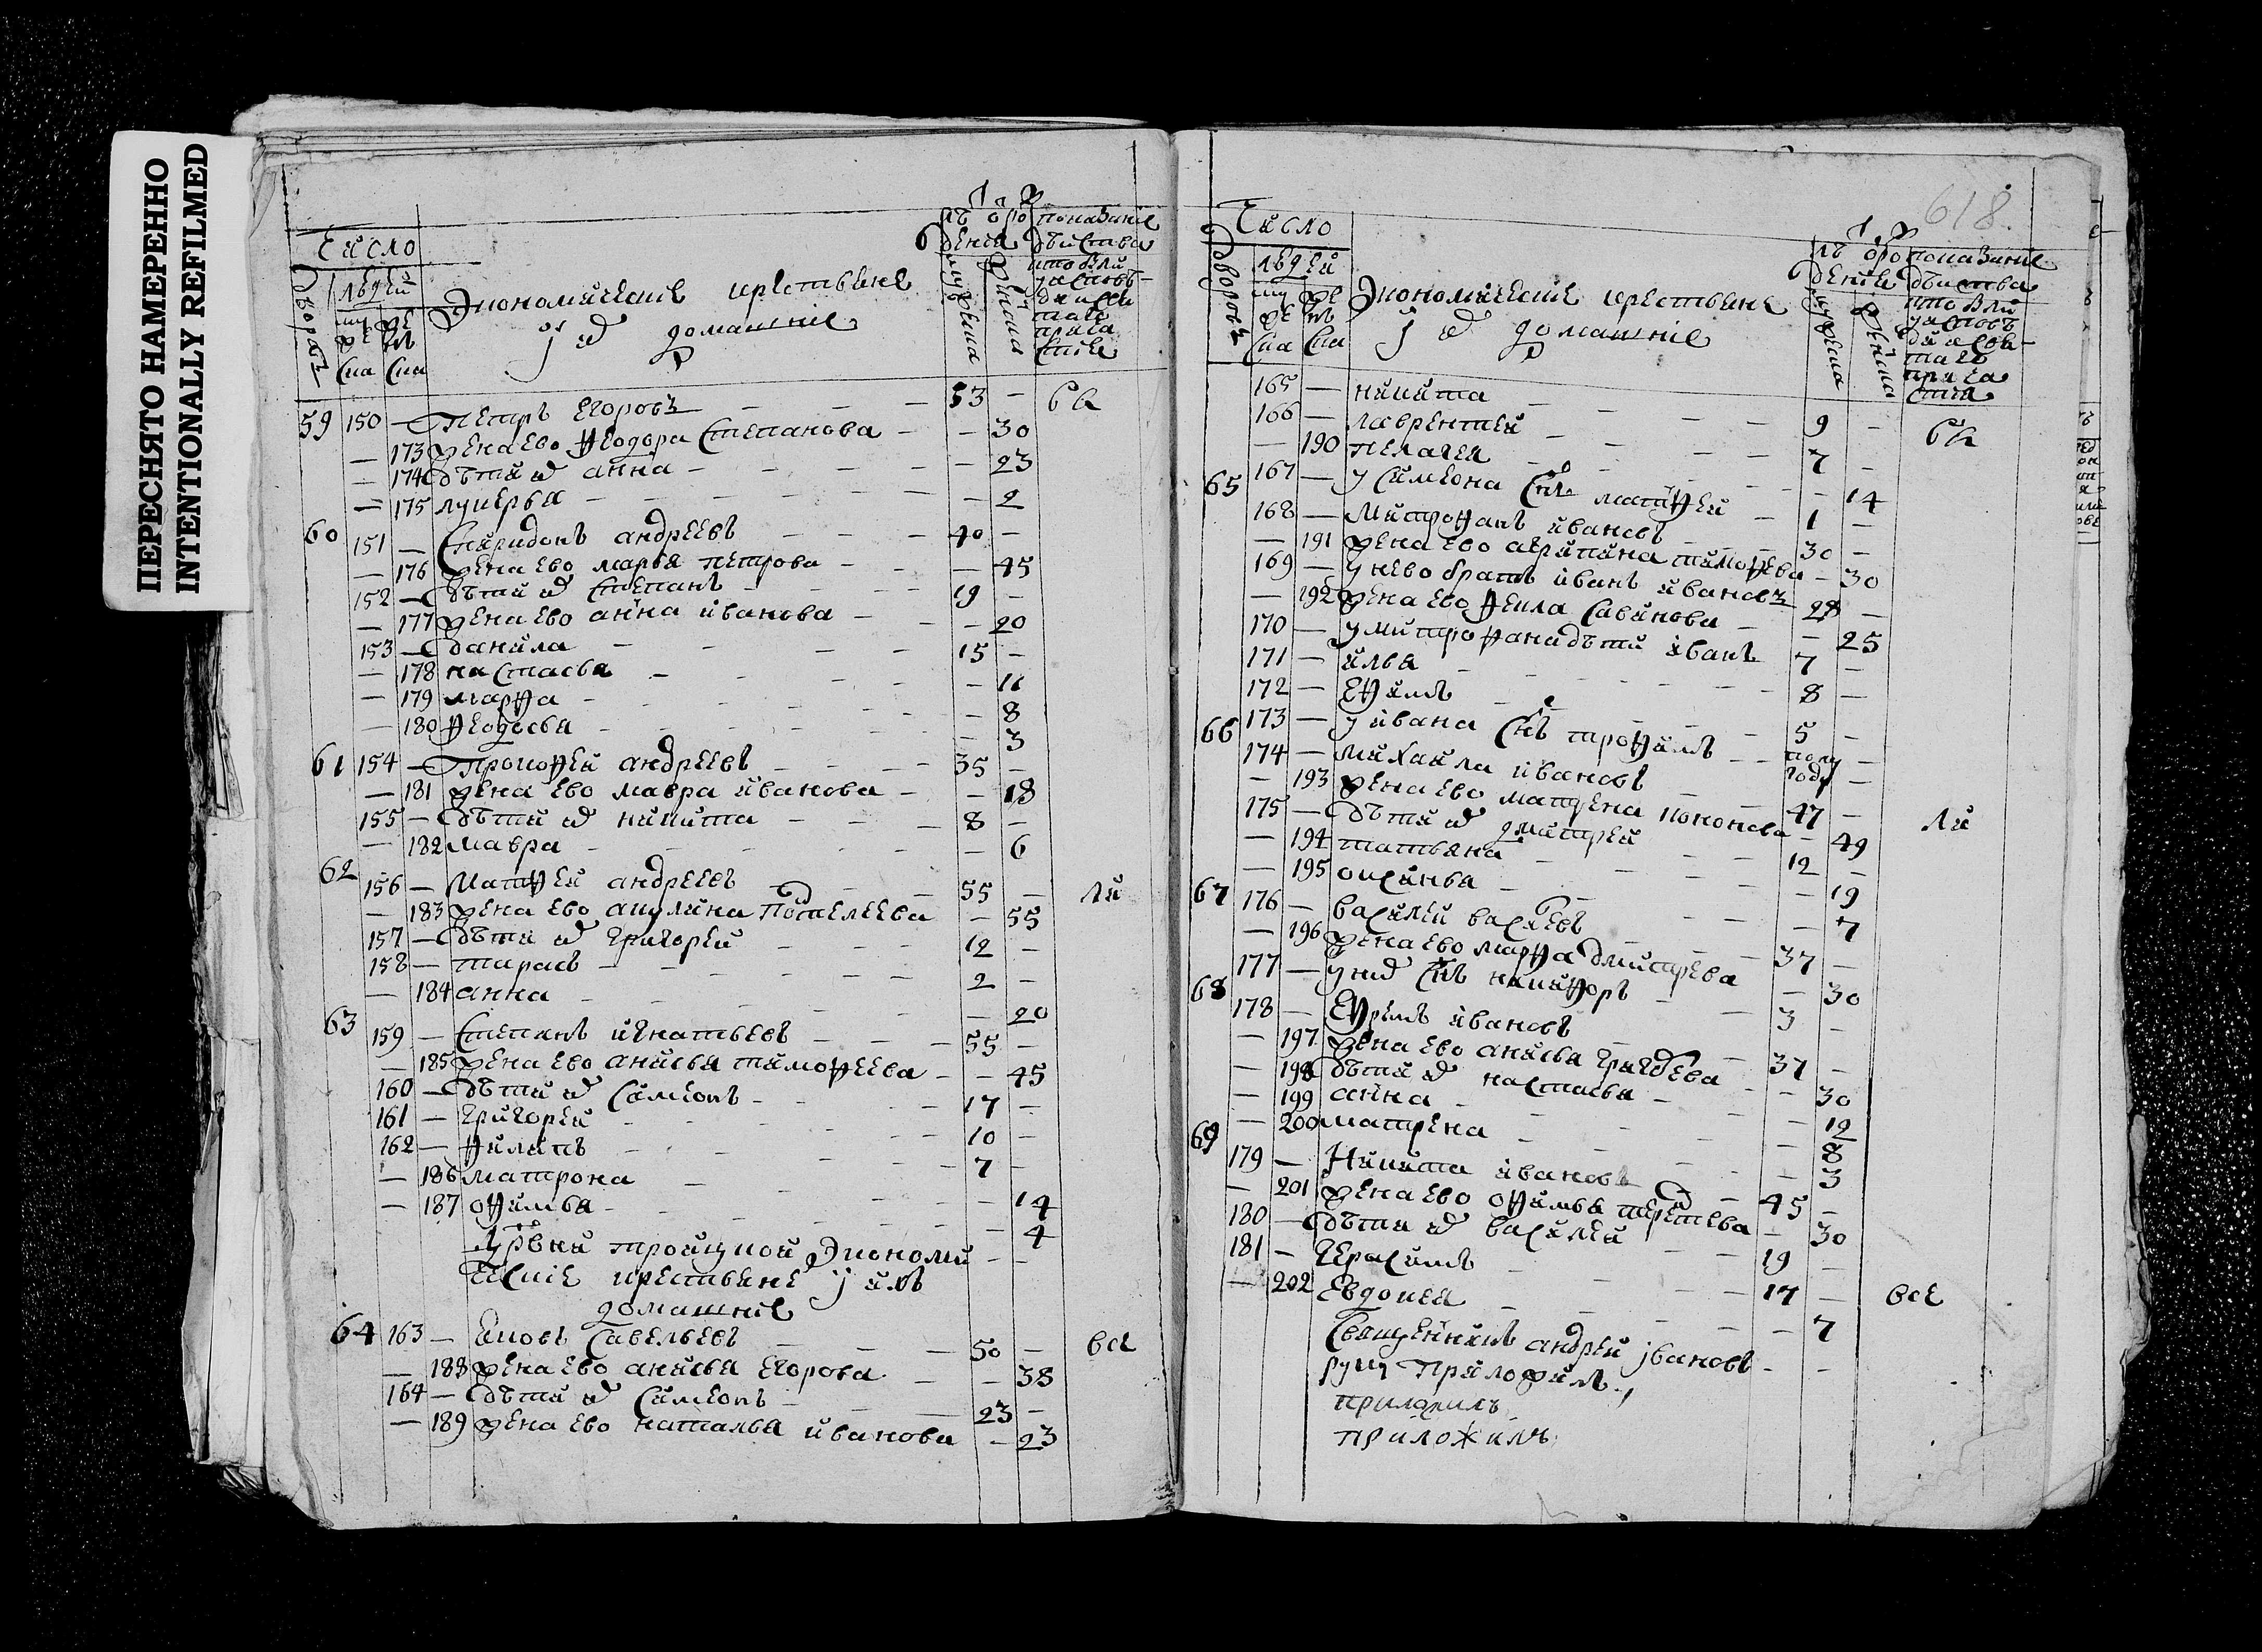 ПЕРЕСНЯТО НАМЕРЕННО
INTENTIONALLY REFILMED
Число
дворовъ
людей
Экономическіе крестьяне
и ихъ домашніе
59 150 — Петръ Егоровъ — 53 —
— 173 жена ево Феодора Степанова — — 30
— 174 дѣти ихъ Анна — — 23
— 175 Лукерья — — 2
60 151 — Спиридонъ Андреевъ — 40 —
— 176 жена ево Марья Петрова — — 45
152 — дѣти ихъ Степанъ — 19 —
— 177 жена ево Анна Иванова — — 20
153 — Данила — 15 —
— 178 Настасья — — 11
— 179 Марфа — — 8
— 180 Феодосья — — 3
61 154 — Прокофей Андреевъ — 35 —
— 181 жена ево Мавра Иванова — — 18
155 — дѣти ихъ Никита — 8 —
— 182 Мавра — — 6
62 156 — Матфей Андреевъ — 55 —
— 183 жена ево Акулина — 55
157 — дѣти ихъ Григорей — 12 —
158 — Тарасъ — 2 —
— 184 Анна — — 20
63 159 — Степанъ Игнатьевъ — 55 —
— 185 жена ево Анисья Тимофеева — — 45
160 — дѣти ихъ Симеонъ — 17 —
161 — Григорей — 10 —
162 — Филипъ — 7 —
— 186 Матрона — — 14
— 187 Офимья — — 4
Троицкой Экономи
ческіе крестьяне и ихъ
домашніе
64 163 — Яковъ Савельевъ — 50 — всѣ
— 188 жена ево Анисья Егорова — — 38
164 — дѣти ихъ Симеонъ — 23 —
— 189 жена ево Наталья Иванова — 23
618
Число
дворовъ
людей
Экономическіе крестьяне
и ихъ домашніе
165 — Никита — 9 —
166 — Лаврентей — 7 —
— 190 Пелагея — — 14
65 167 — у Симеона снъ Матфей — 1 —
168 — Митрофанъ Ивановъ — 30 —
— 191 жена ево Агрипина Тимофева — 30
169 — у нево братъ Иванъ Ивановъ 28 —
— 192 жена ево Фекла Савинова — — 25
170 — у Митрофана дѣти Иванъ 7 —
171 — Илья — 8 —
172 — Ефимъ — 5 —
173 — у Ивана снъ Трофимъ — полу году —
66 174 — Михаила Ивановъ — 47 —
— 193 жена ево Матрена — 49
175 — дѣти ихъ Дмитрей — 12 —
— 194 Татьяна — — 19
— 195 Оксинья — — 7
67 176 — Василей Васілевъ — 37 —
— 196 жена ево Марфа Дмитрева — 30
177 — у них снъ Никифоръ — 3 —
68 178 — Ефремъ Ивановъ — 37 —
— 197 жена ево Анисья — 30
— 198 дѣти ихъ Настасья — — 12
— 199 Анна — — 8
— 200 Матрена — — 3
69 179 — Никита Ивановъ — 45 —
— 201 жена ево Офимья — 30
180 — дѣти ихъ Василей — 19 —
181 — Герасимъ — 17 — всѣ
— 202 Евдокея — — 7
Священникъ Андрей Iвановъ
руку приложилъ
приложилъ
приложилъ